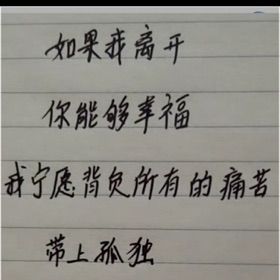 如果我离开
你能够幸福
我宁愿背负所有的痛苦
带上孤独